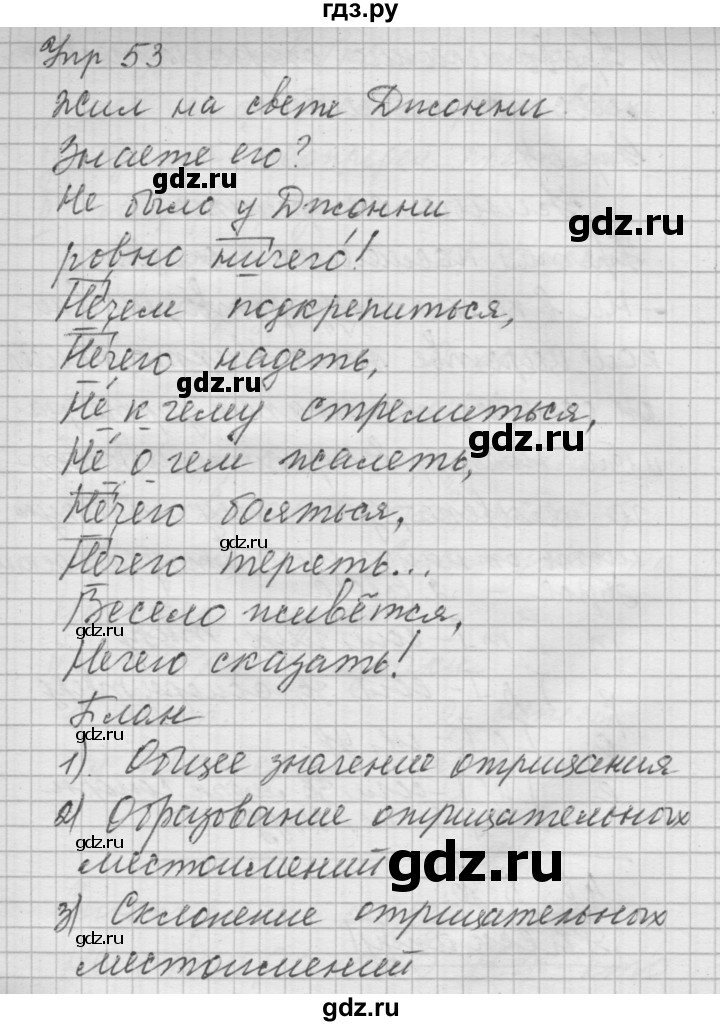 гдз.ру
Упр 53
Жил на свете Джонни
Знаете его?
gdz.ru
Не было у Джонни
ровно ничего!
gdz.ru
Нечем подкрепиться,
Нечего надеть,
gdz.ru
Не к чему стремиться,
gdz.ru
Не о чем жалеть,
Нечего бояться,
gdz.ru
Нечего терять...
Весело живётся,
gdz.ru
Нечего сказать!
План
gdz.ru
1) Общее значение отрицания
2) Образование отрицательных
местоимений
gdz.ru
3) Склонение отрицательных
gdz.ru
местоимений
gdz.ru